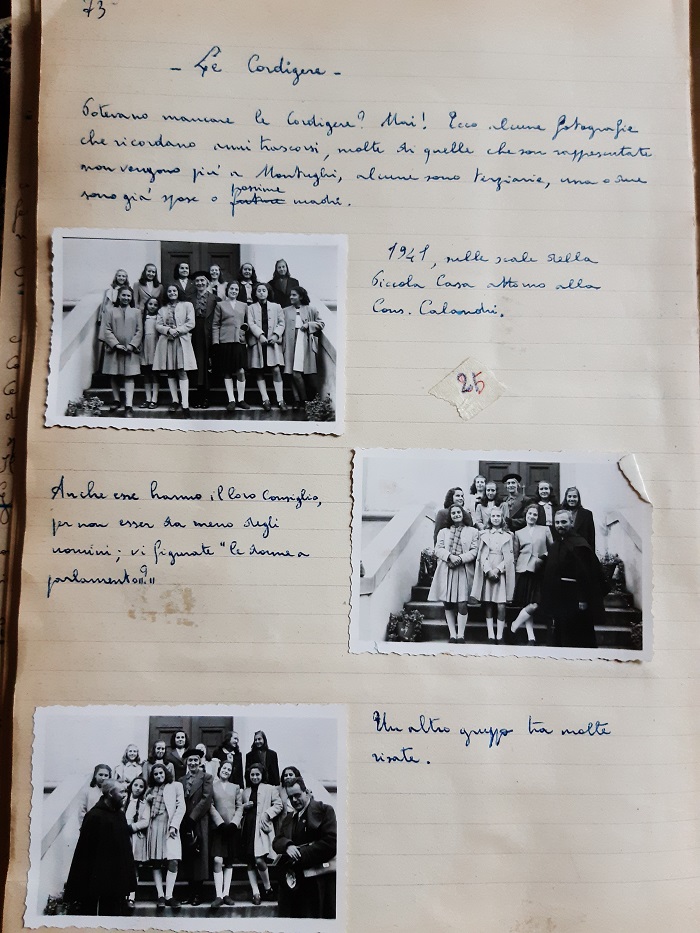 73
- Le Cordigere -
Potevano mancare le Cordigere? Mai! Ecco alcune fotografie
che ricordano anni trascorsi, molte di quelle che son rappresentate
non vengono più a Montughi, alcune sono terziarie, una o due
sono già spose o future prossime madri.
1941, sulle scale della
Piccola Casa attorno alla
Cons. Calandri.
25
Anche esse hanno il loro Consiglio,
per non esser da meno degli
uomini; vi figurate "le donne a
parlamento?!!"
Un altro gruppo tra molte
risate.